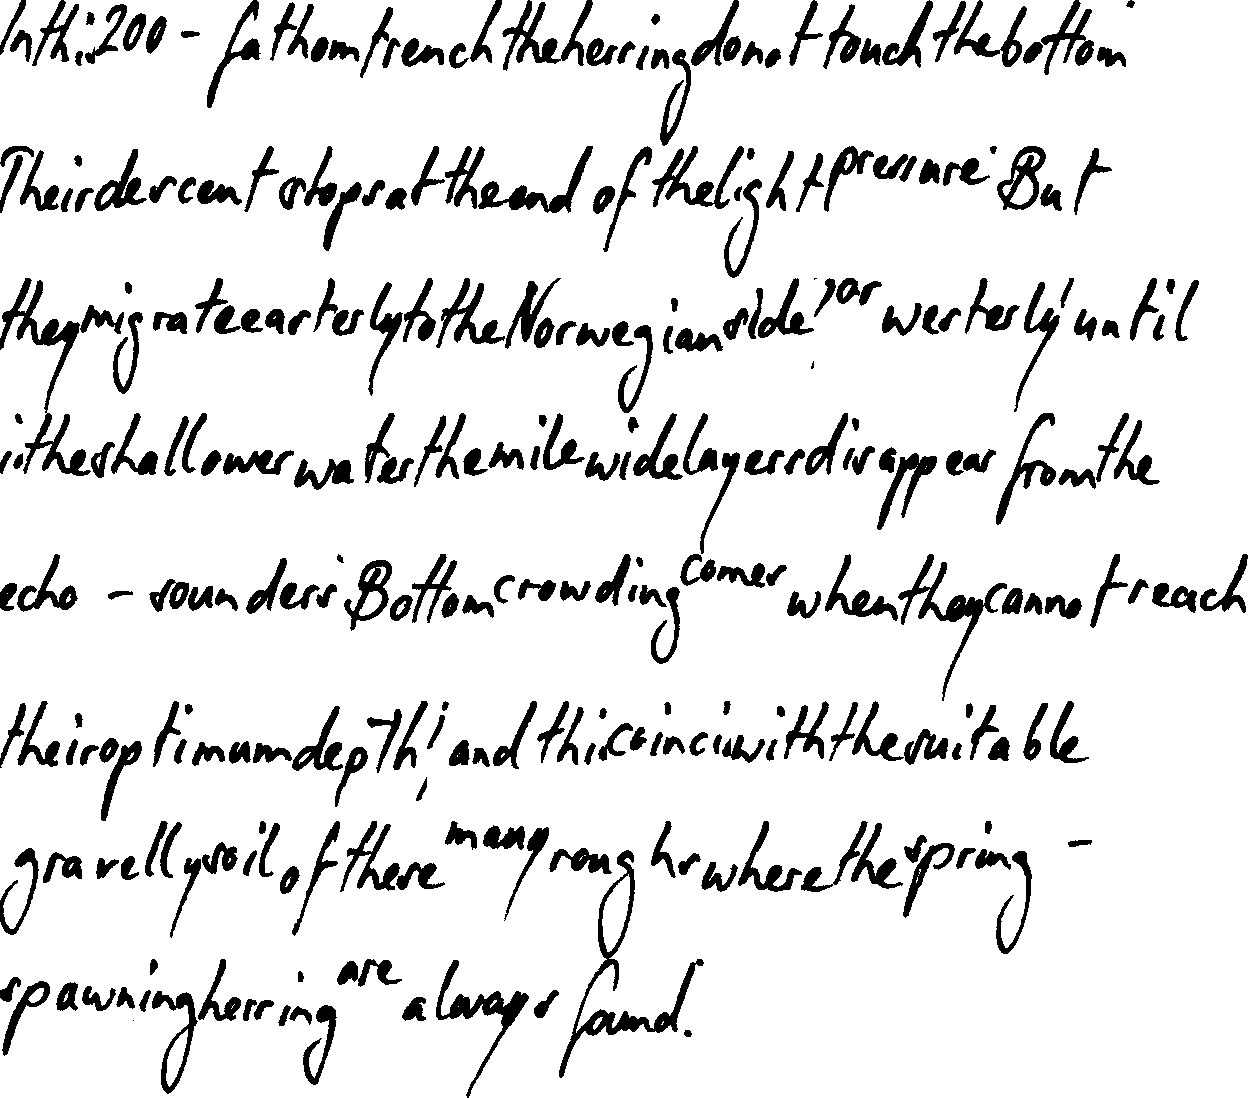 In this 200 - fathom trench the herring do not touch the bottom.
Their descent stops at the end of the light pressure. But
they migrate easterly to the Norwegian side, or westerly, until
in the shallower water the mile wide layers disappear from the
echo - sounders. Bottom crowding comes when they cannot reach
their optimum depth; and this coincides with the suitable
gravelly soil of these many roughs where the spring -
spawning herring are always found.